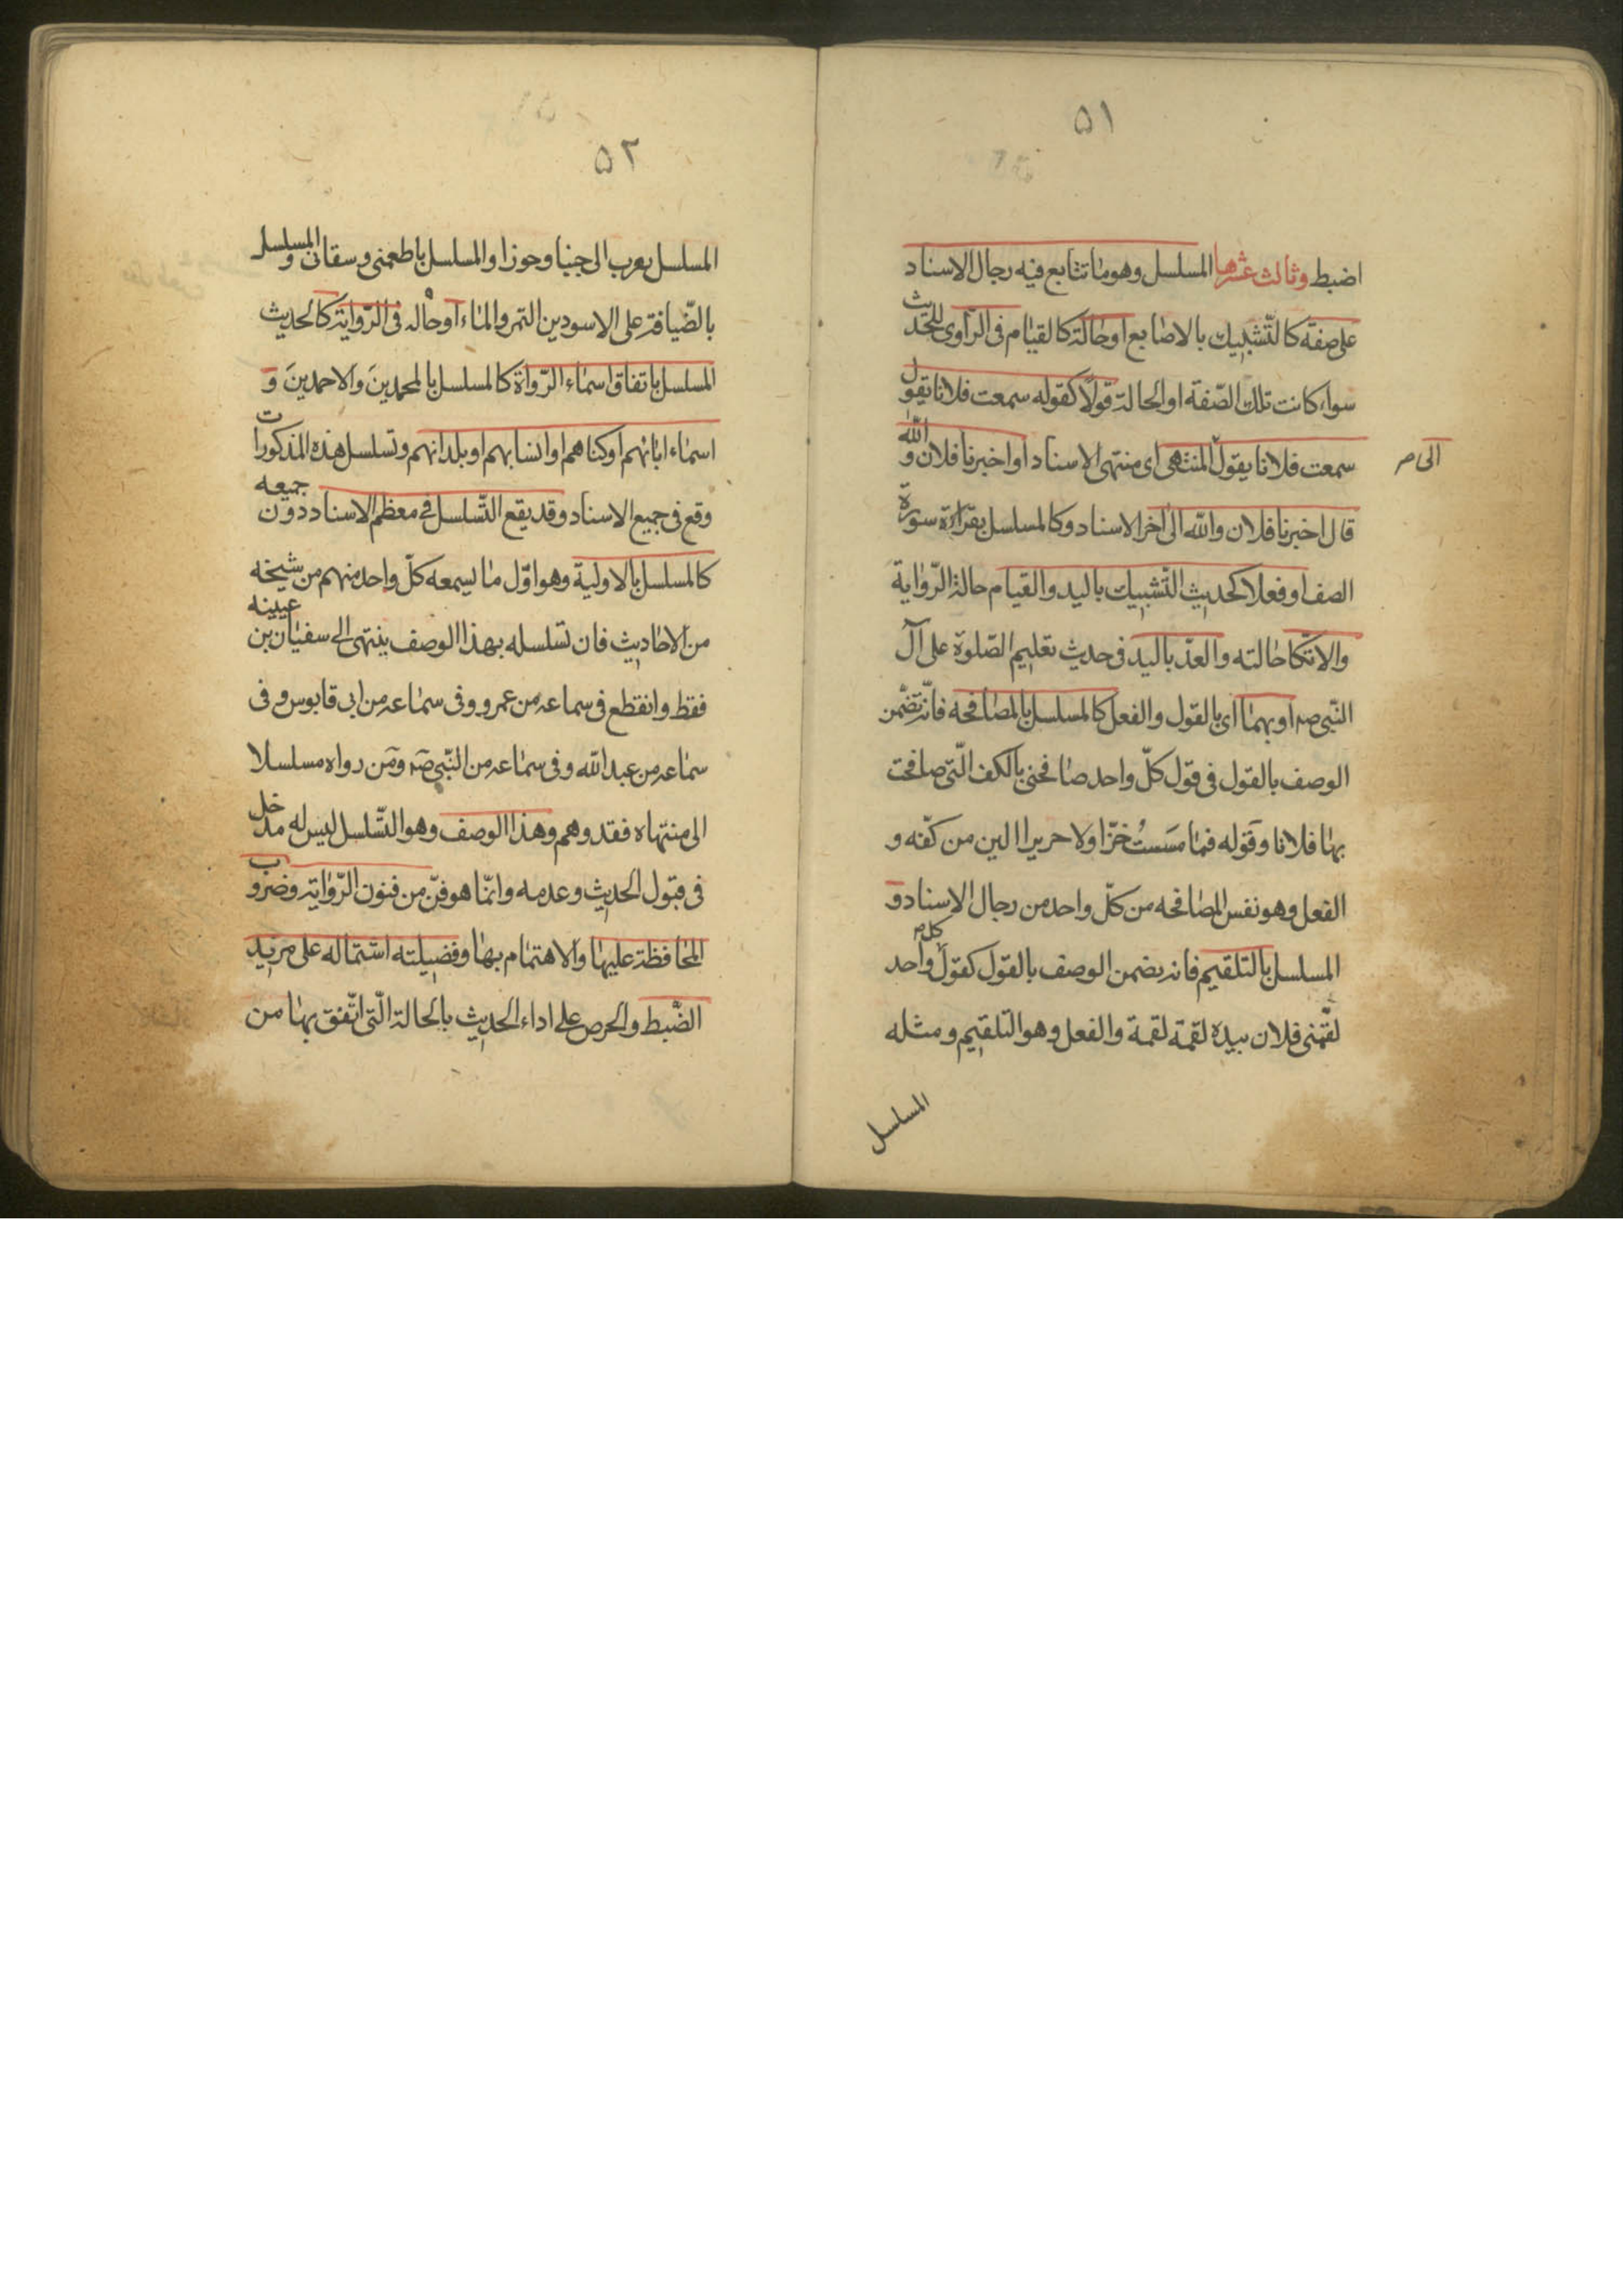 ٥١
اضبط وثالث عشرها المسلسل وهو ما تتابع فيه رجال الاسناد
على صفة كالتّشبيك بالاصابع او حالة كالقيام فى الرّاوى للحديث
سواء كانت تلك الصّفة او الحالة قولًا كقوله سمعت فلانا يقول
سمعت فلانا يقول المنتهى اى منتهى الاسناد او اخبرنا فلان والله
الى
قال اخبرنا فلان والله الى اخر الاسناد وكالمسلسل بقراءة سورة
الصف او فعلا كحديث التّشبيك باليد والقيام حالة الرّواية
والاتّكا حالته والعدّ باليد فى حديث تعليم الصّلوة على آل
النّبى ص او بهما اى بالقول والفعل كالمسلسل بالمصافحه فانّه تضمّن
الوصف بالقول فى قول كلّ واحد صافحنى بالكف الّتى صافحت
بها فلانا وقوله فما مسست خزّا ولا حريرا الين من كفّه و
الفعل وهو نفس المصافحه من كلّ واحد من رجال الاسناد و
المسلسل بالتلقيم فانه يضمن الوصف بالقول كقول كل واحد
لقّمنى فلان بيده لقمة لقمة والفعل وهو التلقيم ومثله
المسلسل
٥٢
المسلسل يعرب الى جينا وحوزا والمسلسل باطعمنى وسقانى والمسلسل
بالضّيافة على الاسودين التمر والماء او حاله فى الرّواية كالحديث
المسلسل باتفاق اسماء الرّواة كالمسلسل بالمحمدينَ والاحمدينَ و
اسماء ابائهم او كناهم او انسابهم او بلدانهم وتسلسل هذه المذكورات
وقع فى جميع الاسناد وقد يقع التّسلسل فى معظم الاسناد دون جميعه
كالمسلسل بالاولية وهو اوّل ما يسمعه كلّ واحد منهم من شيخه
من الاحاديث فان تسلسله بهذا الوصف ينتهى الى سفيان بن عيينه
فقط وانقطع فى سماعه من عمرو وفى سماعه من ابى قابوس وفى
سماعه من عبد الله وفى سماعه من النّبى ص ومَن رواه مسلسلا
الى منتهاه فقد وهم وهذا الوصف وهو التّسلسل ليس له مدخل
فى قبول الحديث وعدمه وانّما هو فنّ من فنون الرّواية وضروب
المحافظة عليها والاهتمام بها وفضيلته اشتماله على مزيد
الضّبط والحرص على اداء الحديث بالحالة الّتى اتّفق بها من